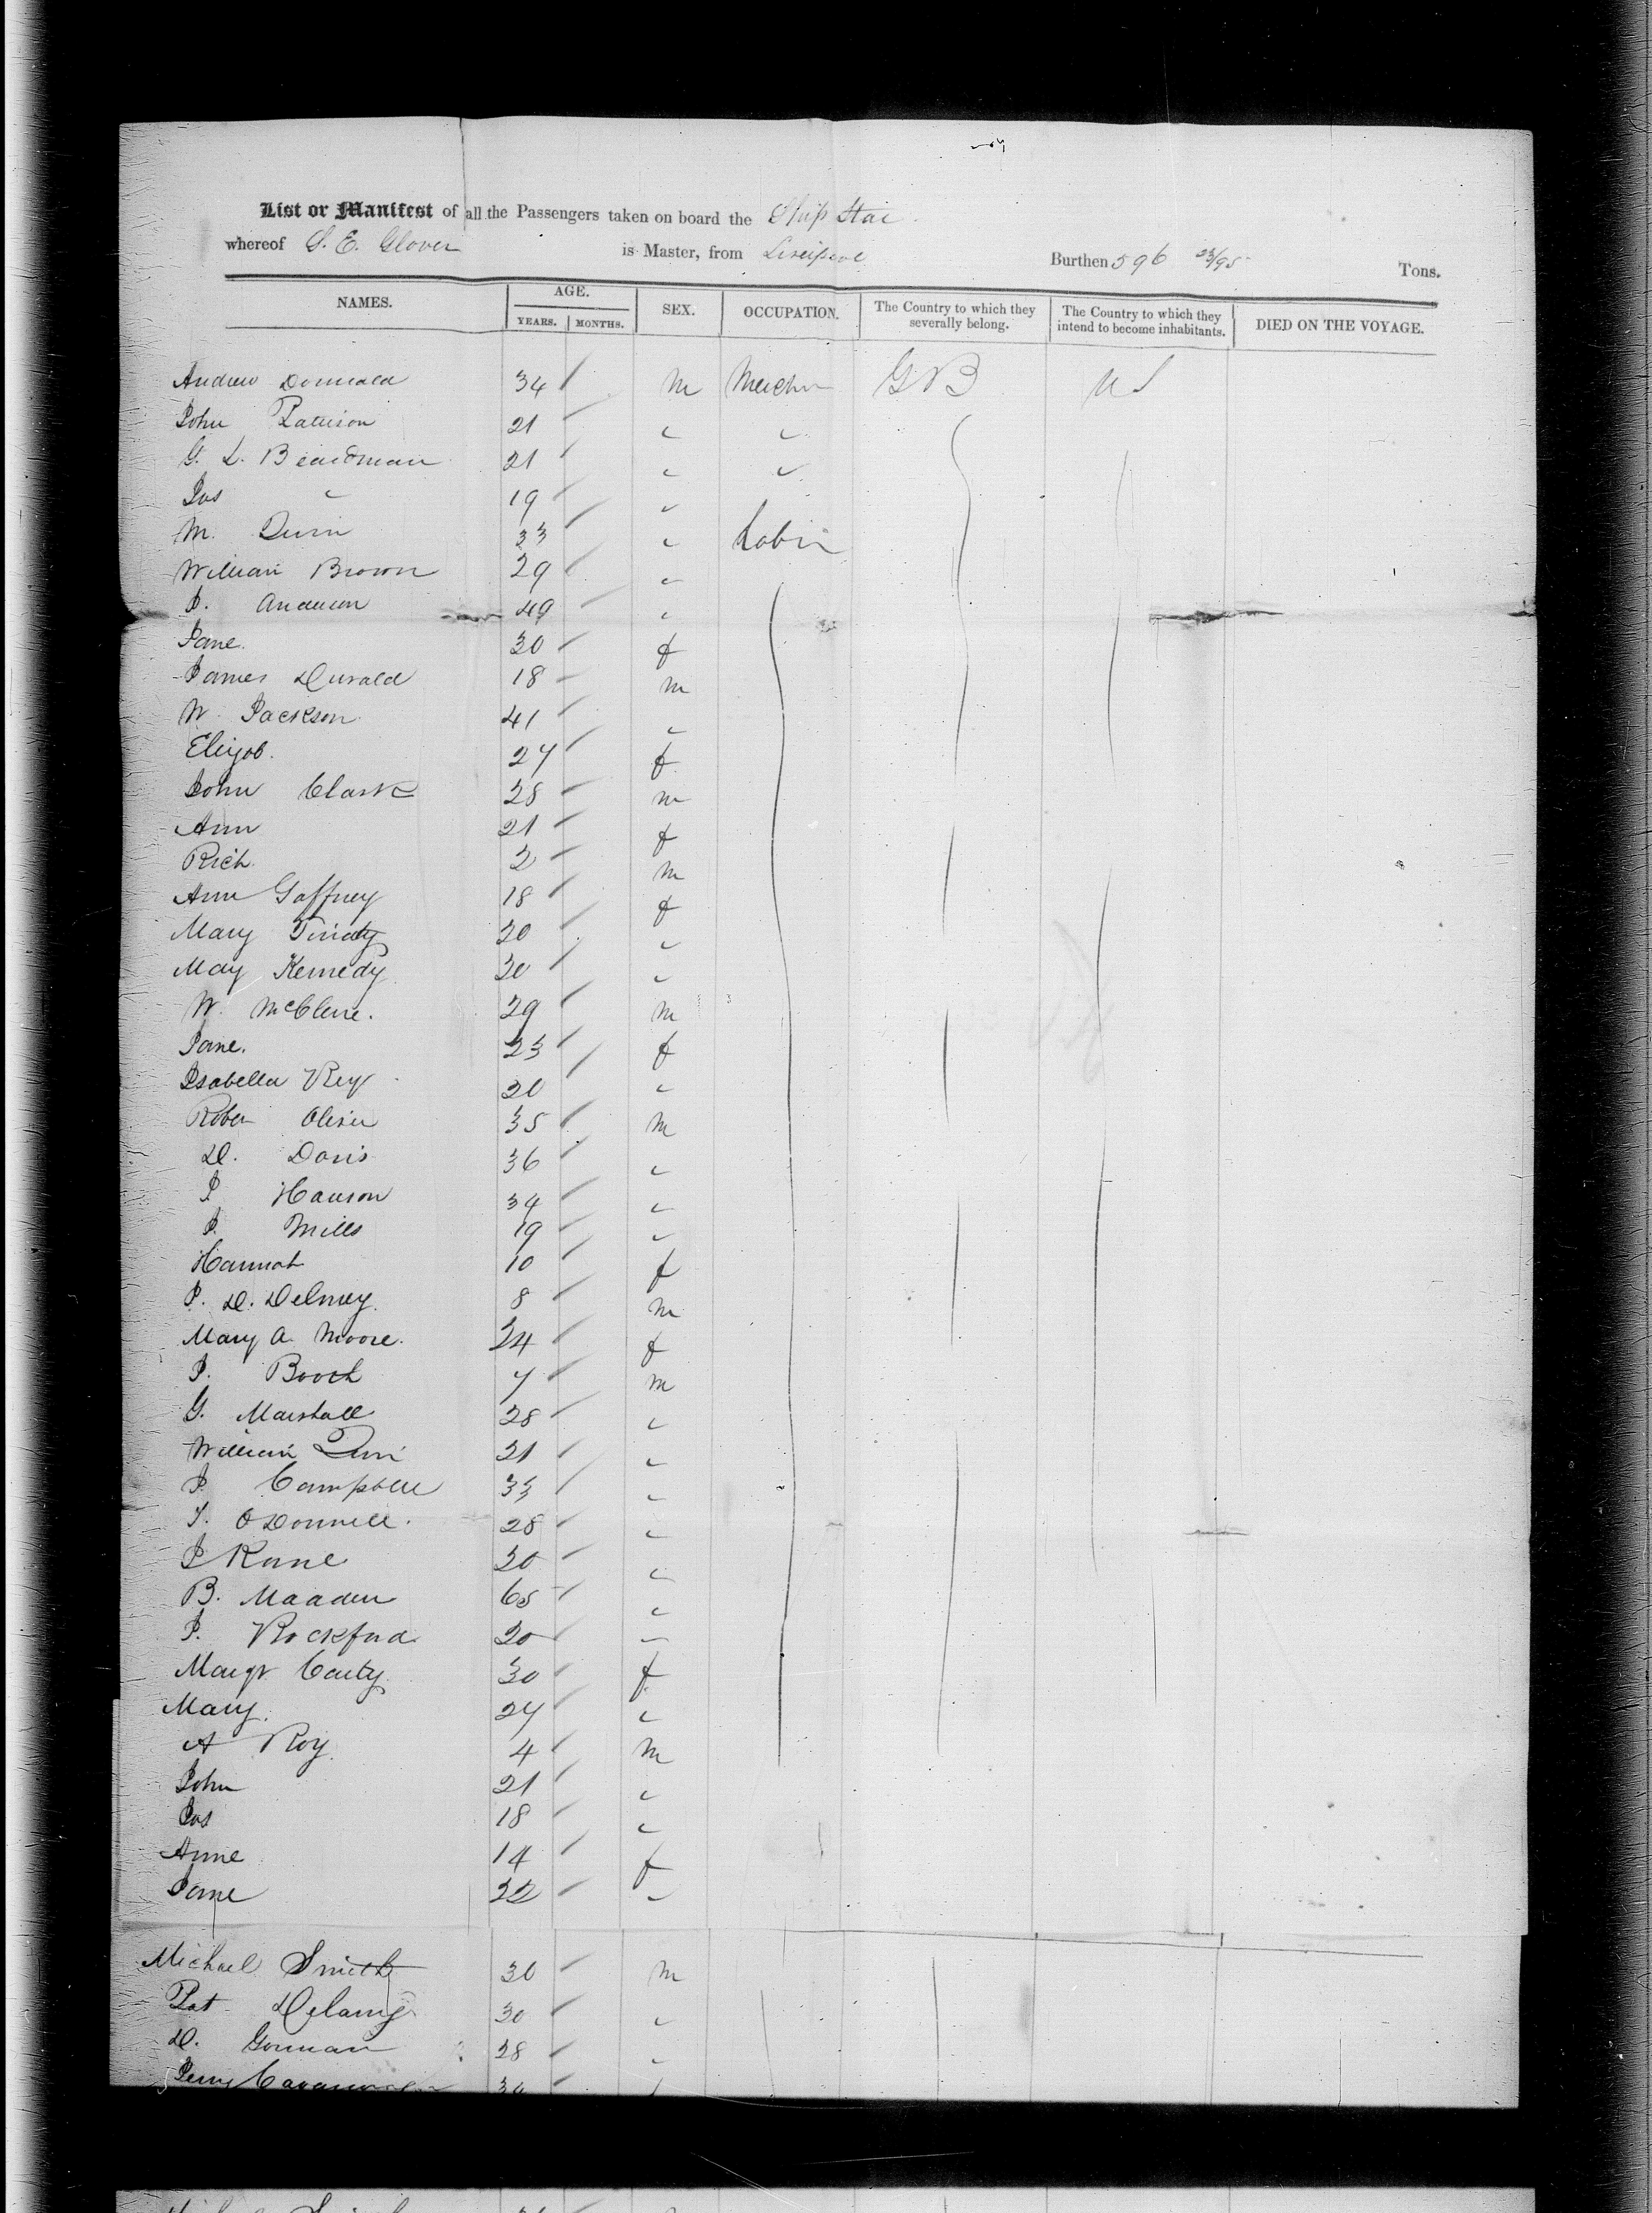 List or Manifest of all the Passengers taken on board the Ship Star
whereof S. E. Glover is Master, from Liverpool Burthen 596 23/95 Tons.
NAMES. AGE. SEX. OCCUPATION. The Country to which they severally belong. The Country to which they intend to become inhabitants. DIED ON THE VOYAGE.
YEARS. MONTHS.
Andrew Donnald 34 m Mercht G B U S
John Patterson 21 " "
G. L. Beardman 21 " "
Jas " 19 "
M. Quin 33 " Labr
William Brown 29 "
J. Anderson 49 "
Jane 30 f
James Durald 18 m
W. Jackson 41 "
Elizab. 27 f
John Clark 28 m
Ann 21 f
Rich 2 m
Ann Gaffney 18 f
Mary 20 "
May Kennedy 30 "
W. McClene. 29 m
Jane. 23 f
Isabella 20 "
Rober Oliver 35 m
D. Davis 36 "
J Hanson 34 "
J. Mills 19 "
Hannah 10 f
P. D. Delmey 8 m
Mary A. Moore. 24 f
J. Booth 7 m
G. Marshall 28 "
William Quin 21 "
J. Campbell 33 "
T. O Donnell. 28 "
J Kane 30 "
B. Madden 65 "
P. Rockford 20 "
Margt Carty 30 f
Mary. 27 "
A Roy 4 m
John 21 "
Jas 18 "
Anne 14 f
Jane 22 "
Michael Smith 30 m
Pat Delany 30 "
D. Gorman 28 "